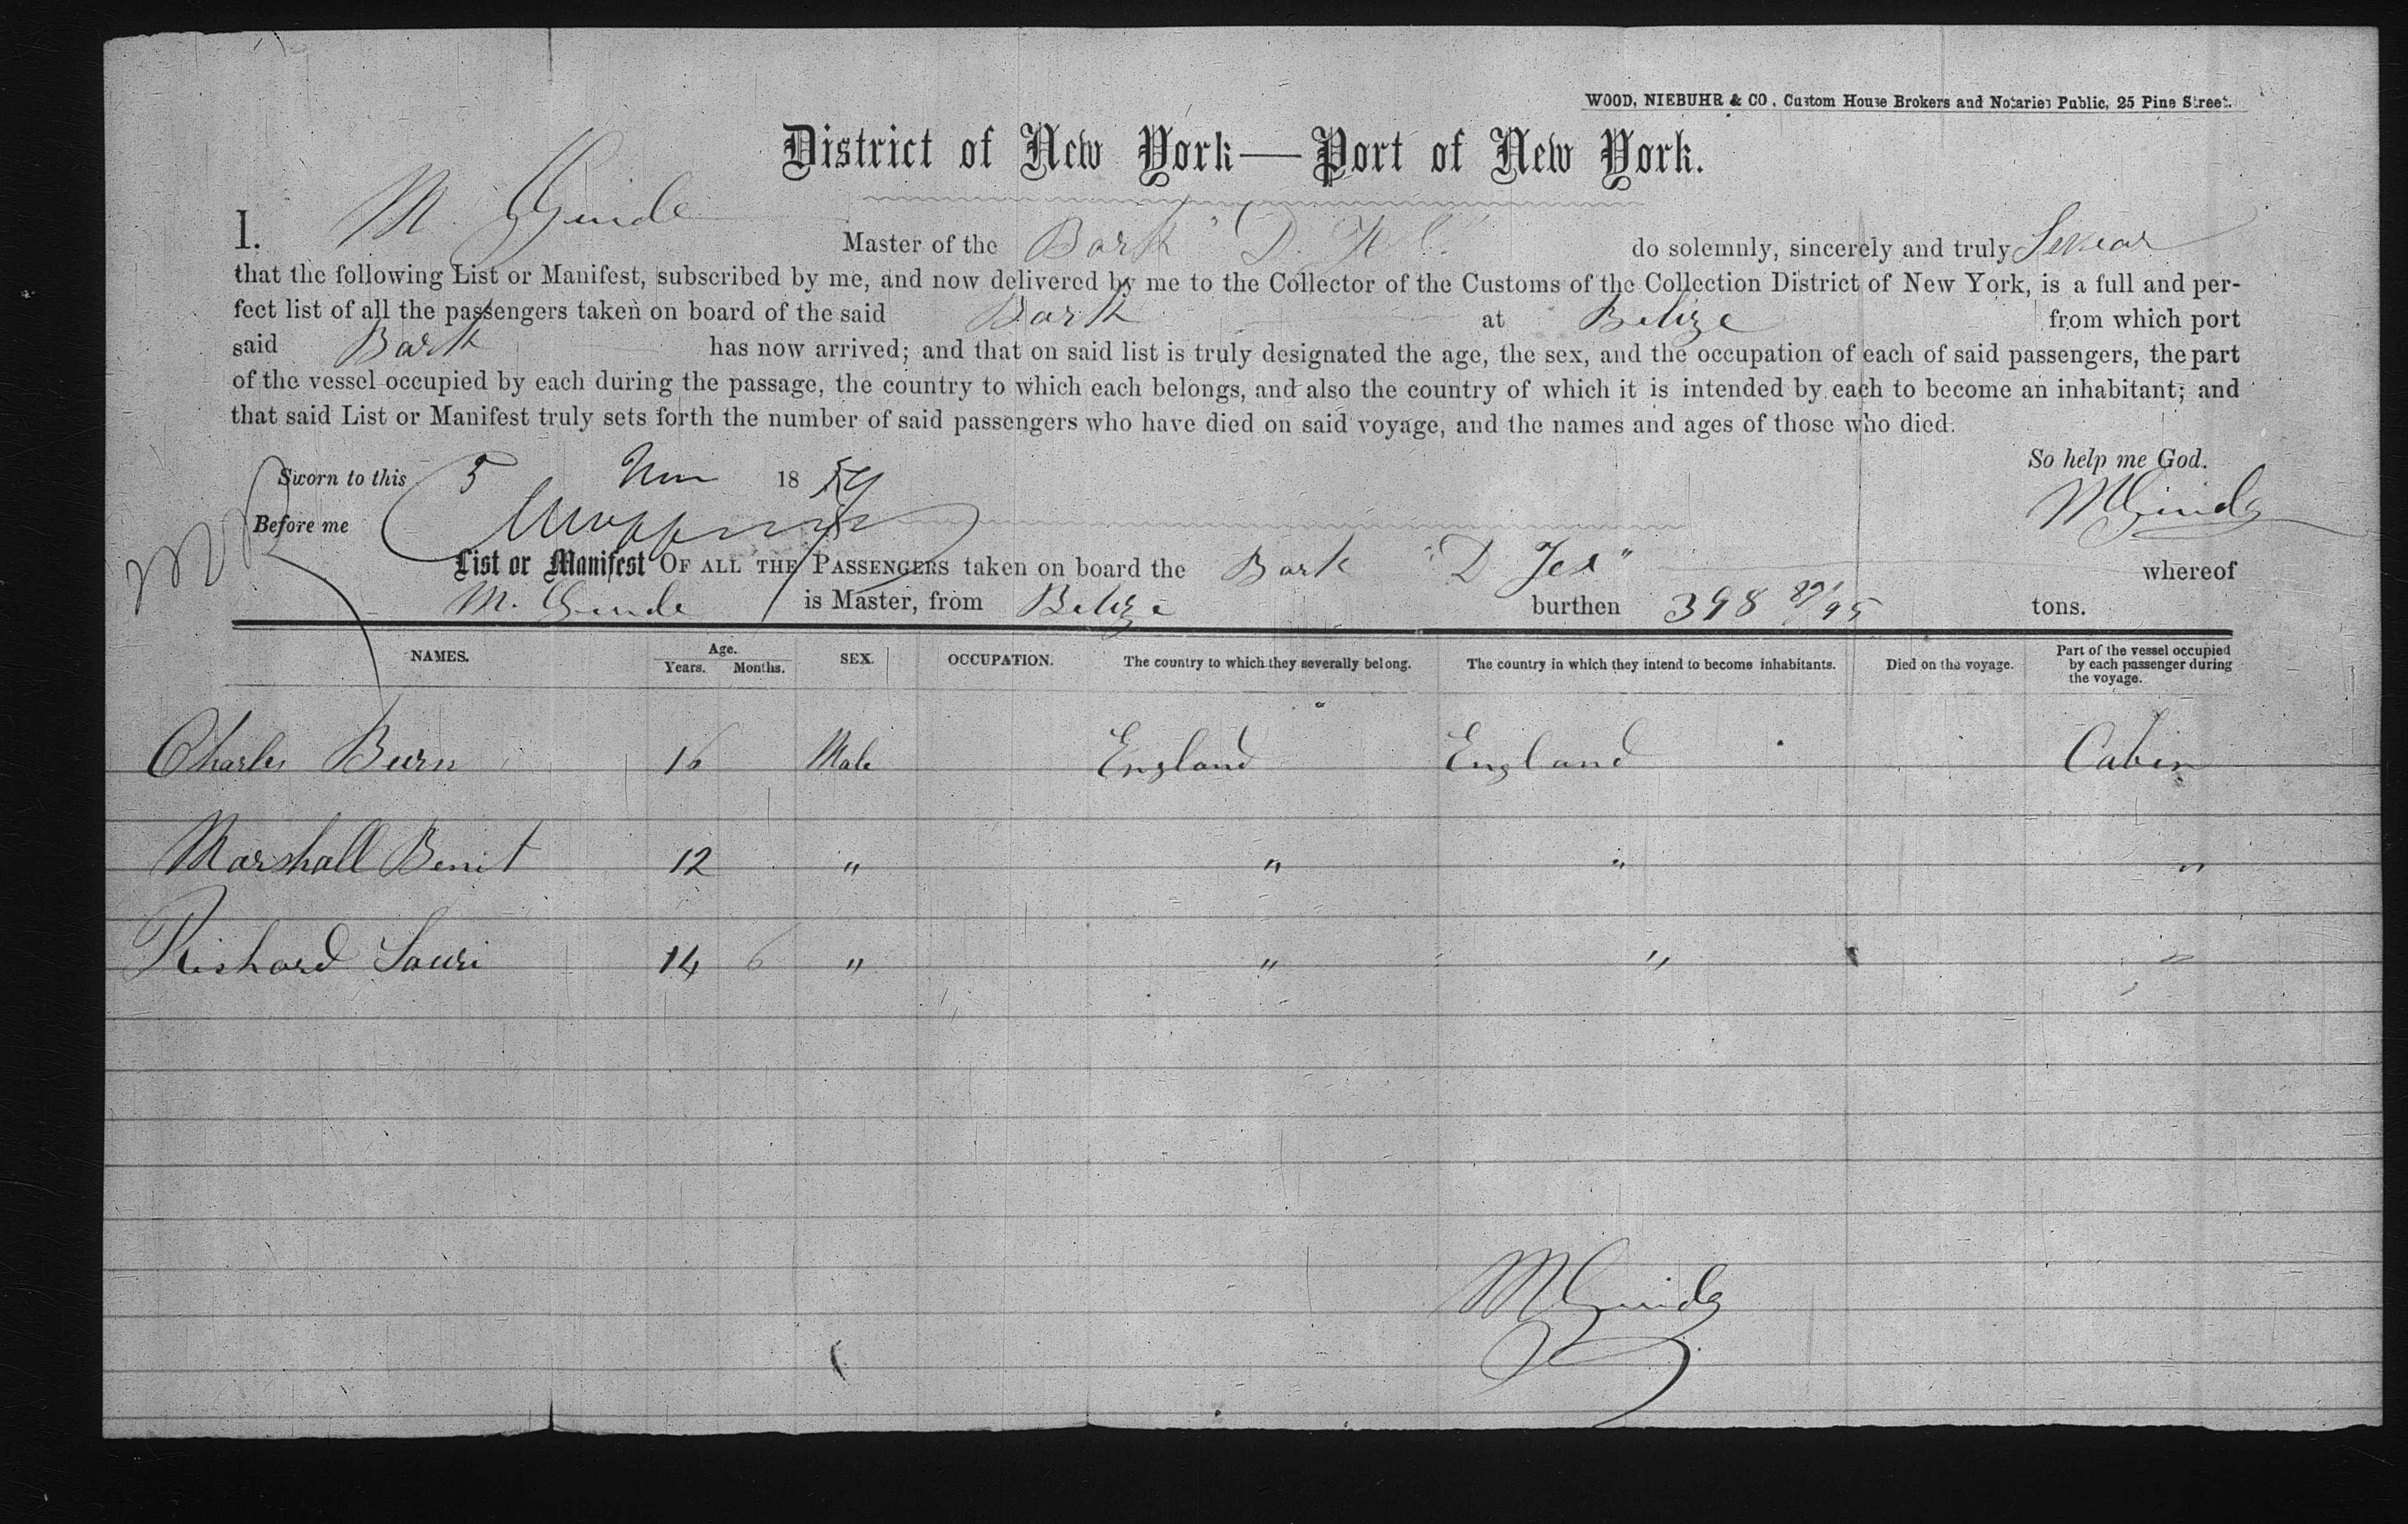 WOOD, NIEBUHR & CO, Custom House Brokers and Notaries Public, 25 Pine Street.
District of New York—Port of New York.
I. M. Master of the Bark " D. do solemnly, sincerely and truly Swear
that the following List or Manifest, subscribed by me, and now delivered by me to the Collector of the Customs of the Collection District of New York, is a full and per-
fect list of all the passengers taken on board of the said Bark at Belize from which port
said Bark has now arrived; and that on said list is truly designated the age, the sex, and the occupation of each of said passengers, the part
of the vessel occupied by each during the passage, the country to which each belongs, and also the country of which it is intended by each to become an inhabitant; and
that said List or Manifest truly sets forth the number of said passengers who have died on said voyage, and the names and ages of those who died.
So help me God.
Sworn to this 5 18
Before me
List or Manifest OF ALL THE PASSENGERS taken on board the Bark "D Jex" whereof
M. is Master, from Belize burthen 398 tons.
NAMES. Age. Years. Months. SEX. OCCUPATION. The country to which they severally belong. The country in which they intend to become inhabitants. Died on the voyage. Part of the vessel occupied by each passenger during the voyage.
Charles Burn 16 Male England England Cabin
Marshall Benit 12 " " " "
Rishard Sauri 14 6 " " " "